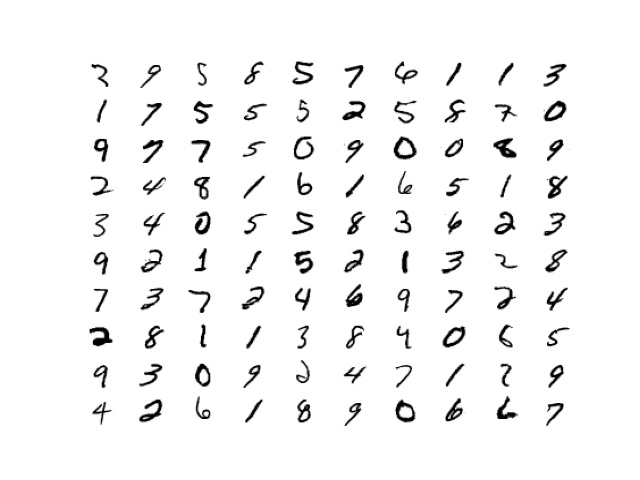 3 9 5 8 5 7 6 1 1 3
1 7 5 5 5 2 5 8 7 0
9 7 7 5 0 9 0 0 8 9
2 4 8 1 6 1 6 5 1 8
3 4 0 5 5 8 3 6 2 3
9 2 1 1 5 2 1 3 2 8
7 3 7 2 4 6 9 7 2 4
2 8 1 1 3 8 4 0 6 5
9 3 0 9 2 4 7 1 2 9
4 2 6 1 8 9 0 6 6 7